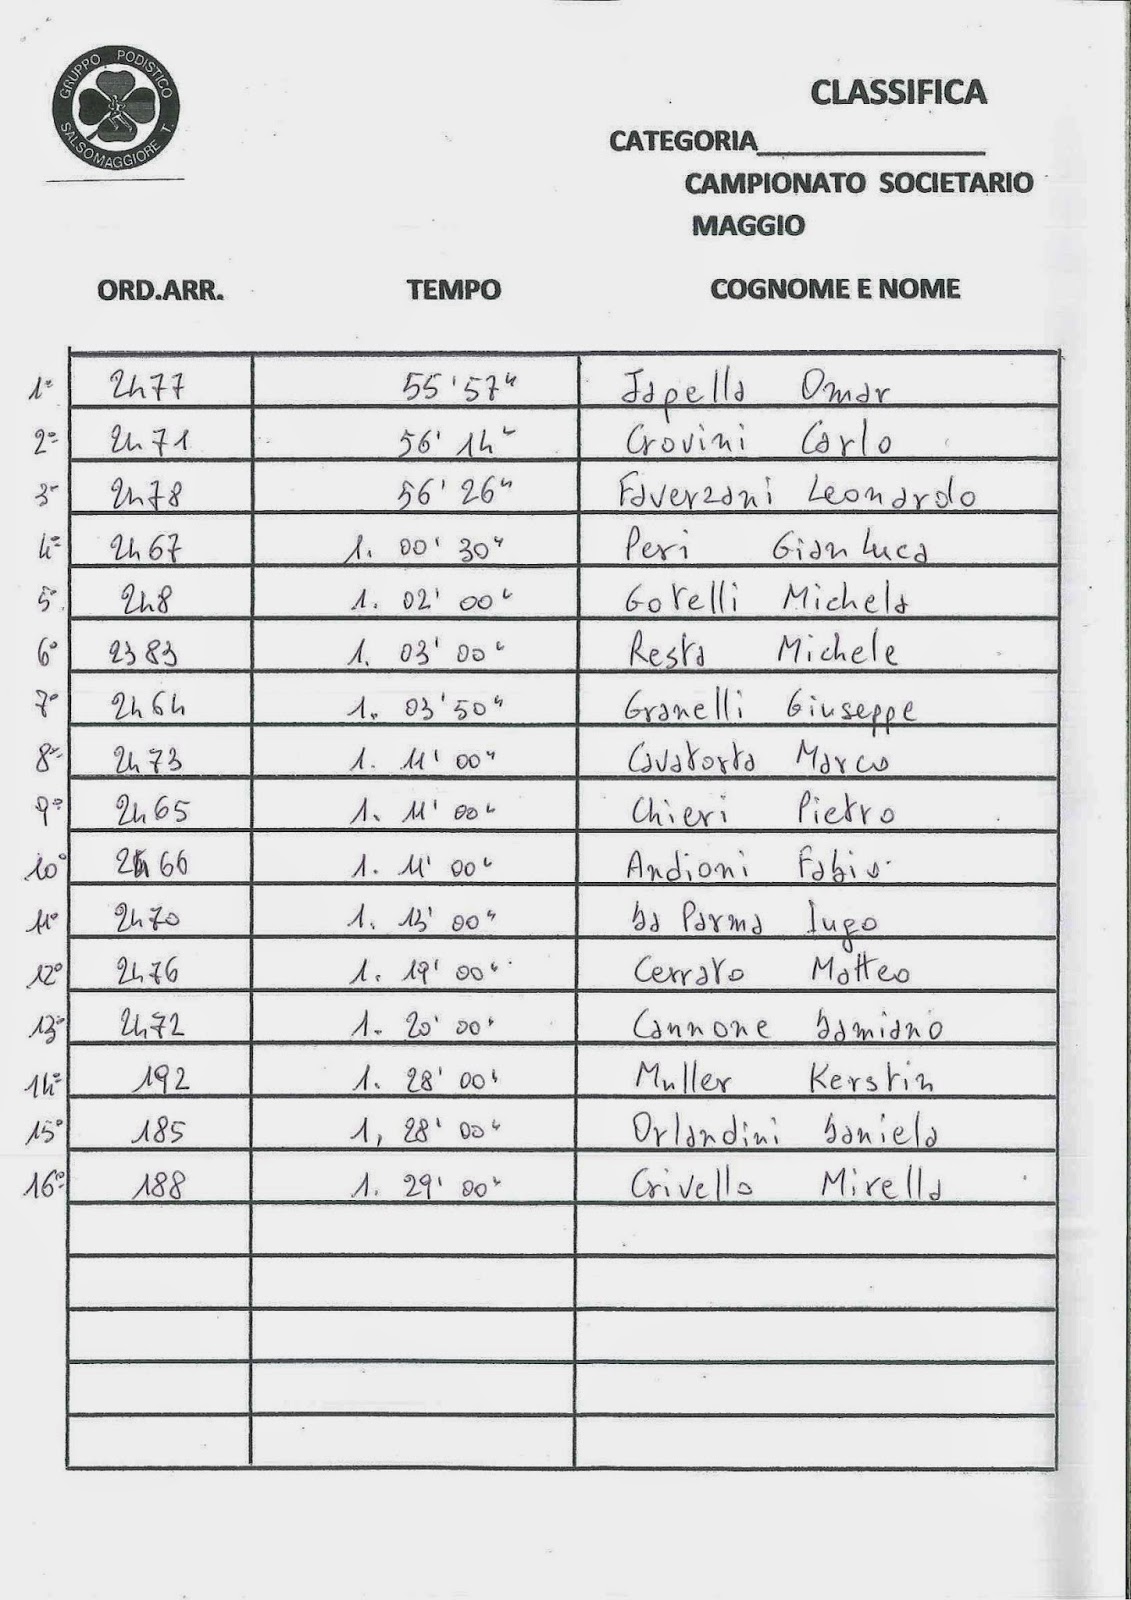 GRUPPO PODISTICO
SALSOMAGGIORE T.
CLASSIFICA
CATEGORIA
CAMPIONATO SOCIETARIO
MAGGIO
ORD.ARR. TEMPO COGNOME E NOME
1° 2477 55'57" Japella Omar
2° 2471 56'14" Crovini Carlo
3° 2478 56'26" Faverzani Leonardo
4° 2467 1. 00'30" Peri Gianluca
5° 248 1. 02'00" Gorelli Michela
6° 2383 1. 03'00" Resta Michele
7° 2464 1. 03'50" Granelli Giuseppe
8° 2473 1. 11'00" Cavatorta Marco
9° 2465 1. 11'00" Chieri Pietro
10° 2466 1. 11'00" Andioni Fabio
11° 2470 1. 13'00" Da Parma Iugo
12° 2476 1. 19'00" Cerrato Matteo
13° 2472 1. 20'00" Cannone Damiano
14° 192 1. 28'00" Muller Kerstin
15° 185 1, 28'00" Orlandini Daniela
16° 188 1. 29'00" Crivello Mirella